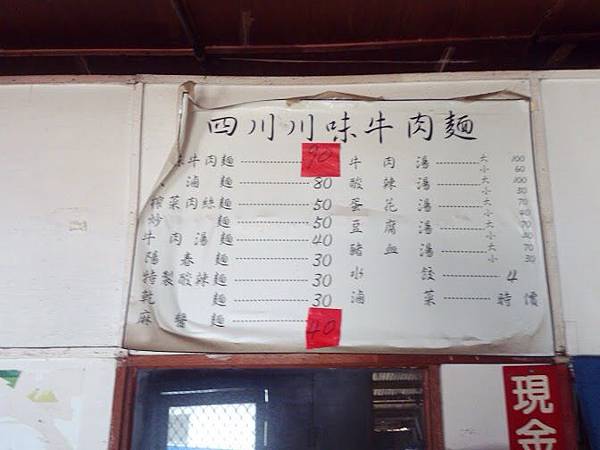 四川川味牛肉麵
味牛肉麵 90
滷麵 80
榨菜肉絲麵 50
炒麵 50
牛肉湯麵 40
陽春麵 30
特製酸辣麵 30
乾麵 30
麻醬麵 40
牛肉湯 大 100 小 60
酸辣湯 大 100 小 30
蛋花湯 大 70 小 40
豆腐湯 大 70 小
豬血湯 大 70 小 30
水餃 4
滷菜 時價
現金